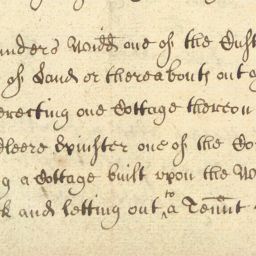 unders widd one of the Cust
of Land or thereabouts out
erecting one Cottage thereon
leere Spinster one of the Co
g a Cottage built upon the Wa
k and letting out to a Tennt